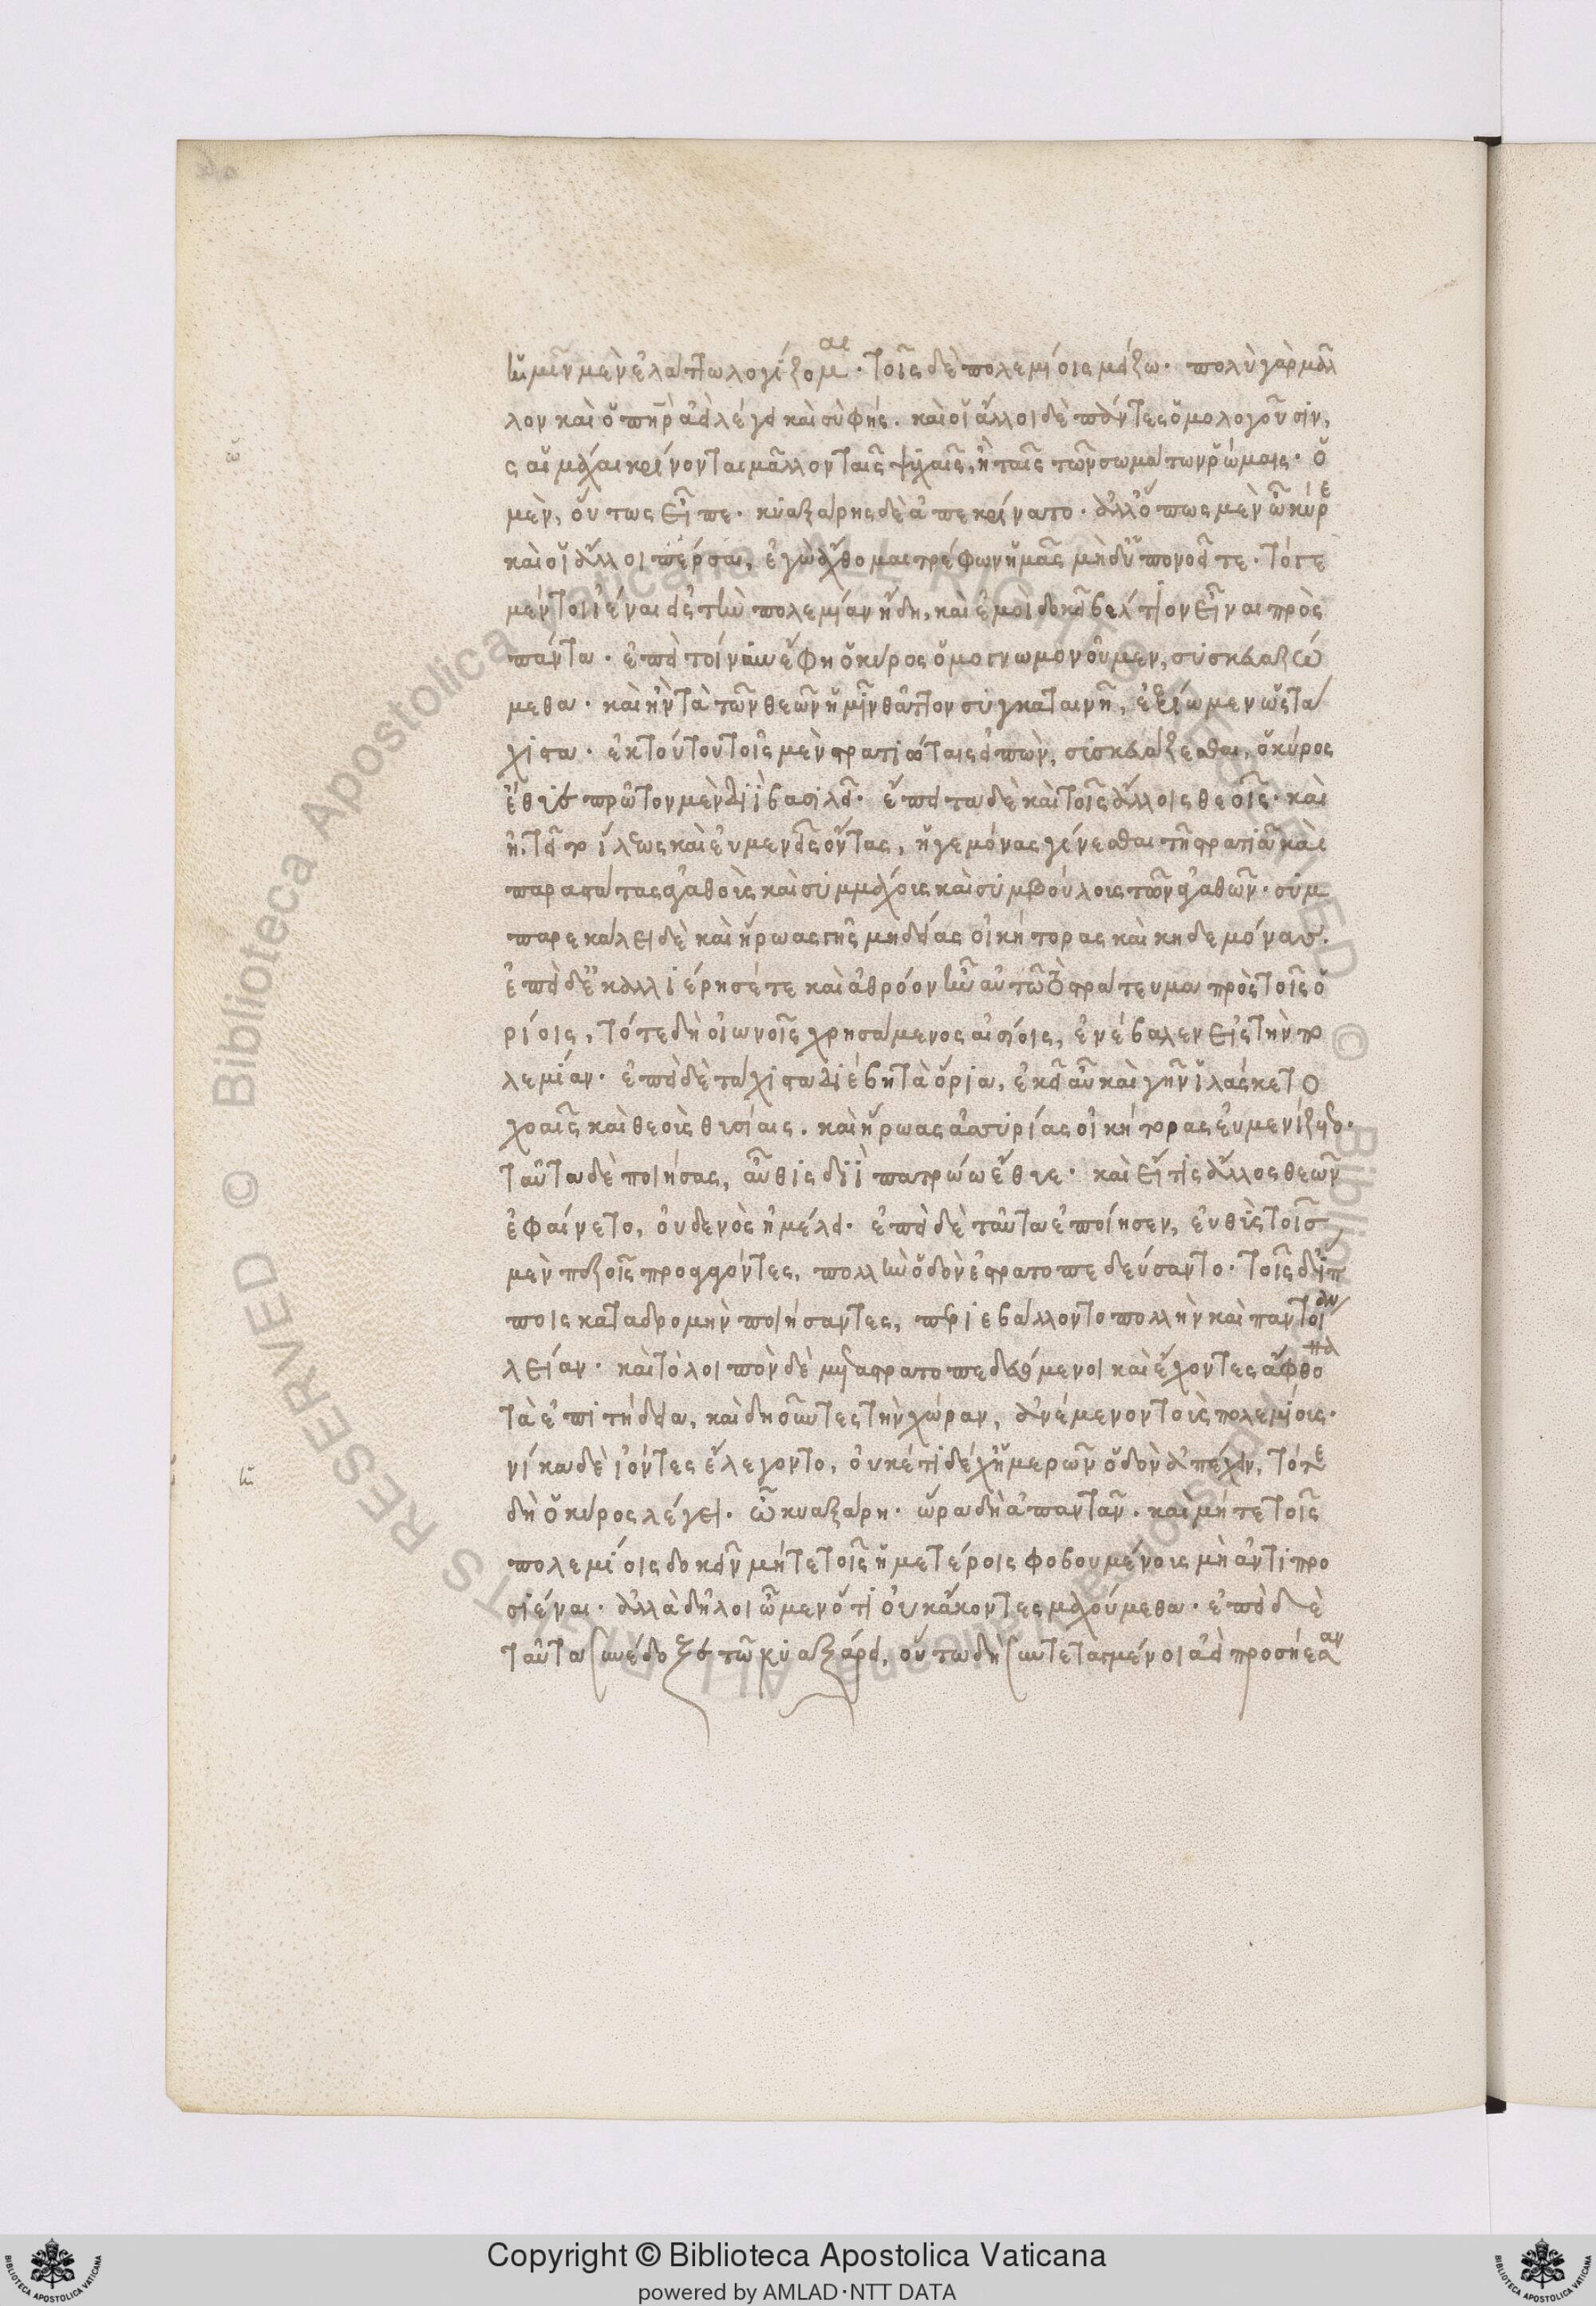 ἡμῖν μὲν ἐλάττω λογίζομαι· τοῖς δὲ πολεμίοις μείζω· πολὺ γὰρ μᾶλ
λον καὶ ὁ πατὴρ ἀεὶ λέγει καὶ σὺ φής. καὶ οἱ ἄλλοι δὲ πάντες ὁμολογοῦσιν,
ς αἱ μάχαι κρίνονται μᾶλλον ταῖς ψυχαῖς, ἢ ταῖς τῶν σωμάτων ῥώμαις· ὁ
μὲν, οὕτως εἶπε. κυαξάρης δὲ ἀπεκρίνατο. ἀλλ' ὅπως μὲν ὦ κύρε
καὶ οἱ ἄλλοι πέρσαι, ἐγὼ ἄχθομαι τρέφων ἡμᾶς μὴ δ' ὑπονοεῖτε. τό γε
μέντοι ἰέναι εἰς τὴν πολεμίαν ἤδη, καὶ ἐμοὶ δοκεῖ βέλτιον εἶναι πρὸς
πάντα. ἐπεὶ τοίνυν ἔφη ὁ κύρος ὁμογνωμονοῦμεν, συσκευαζώ
μεθα. καὶ ἢν τὰ τῶν θεῶν ἡμῖν θᾶττον συγκαταινῇ, ἐξίωμεν ὡς τά
χιστα. ἐκ τούτου τοῖς μὲν στρατιώταις εἰπὼν, συσκευάζεσθαι, ὁ κύρος
ἔθυε πρῶτον μὲν διῒ βασιλεῖ. ἔπειτα δὲ καὶ τοῖς ἄλλοις θεοῖς. καὶ
ᾐτεῖτο ἵλεως καὶ εὐμενεῖς ὄντας, ἡγεμόνας γένεσθαι τῇ στρατιᾷ καὶ
παραστάτας ἀγαθοὺς καὶ συμμάχους καὶ συμβούλους τῶν ἀγαθῶν. συμ
παρεκάλει δὲ καὶ ἥρωας γῆς μηδείας οἰκήτορας καὶ κηδεμόνας.
ἐπεὶ δ' ἐκαλλιέρησέ τε καὶ ἀθρόον ἦν αὐτῷ τὸ στράτευμα πρὸς τοῖς ὁ
ρίοις, τότε δὴ οἰωνοῖς χρησάμενος αἰσίοις, ἐνέβαλεν εἰς τὴν πο
λεμίαν. ἐπεὶ δὲ τάχιστα διέβη τὰ ὅρια, ἐκεῖ αὖ καὶ γῆν ἱλάσκετο
χοαῖς καὶ θεοὺς θυσίαις. καὶ ἥρωας ἀσσυρίας οἰκήτορας εὐμενίζετο.
ταῦτα δὲ ποιήσας, αὖθις διῒ πατρώῳ ἔθυε. καὶ εἴ τις ἄλλος θεῶν
ἐφαίνετο, οὐδενὸς ἠμέλει. ἐπεὶ δὲ ταῦτα ἐποίησεν, εὐθὺς τοὺς
μὲν πεζοὺς προαγαγόντες, πολλὴν ὁδὸν ἐστρατοπεδεύσαντο. τοῖς δ' ἵπ
ποις καταδρομὴν ποιήσαντες, περιεβάλλοντο πολλὴν καὶ παντοίαν
λείαν. καὶ τὸ λοιπὸν δὲ μετα στρατοπεδευόμενοι καὶ ἔχοντες ἄφθονα
τὰ ἐπιτήδεια, καὶ δῃοῦντες τὴν χώραν, ἀνέμενον τοὺς πολεμίους.
νίκα δὲ ἰόντες ἐλέγοντο, οὐκέτι δέχ' ἡμερῶν ὁδὸν ἀπέχειν, τότε
δὴ ὁ κύρος λέγει. ὦ κυαξάρη. ὥρα δὴ ἀπαντᾶν. καὶ μήτε τοῖς
πολεμίοις δοκεῖν μήτε τοῖς ἡμετέροις φοβουμένους μὴ ἀντιπρο
σιέναι. ἀλλὰ δῆλοι ὦμεν ὅτι οὐκ ἄκοντες μαχούμεθα. ἐπεὶ δὲ
ταῦτα συνέδοξε τῷ κυαξάρει, οὕτω δὴ συντεταγμένοι ἀεὶ προσήεσαν
Copyright © Biblioteca Apostolica Vaticana
powered by AMLAD·NTT DATA